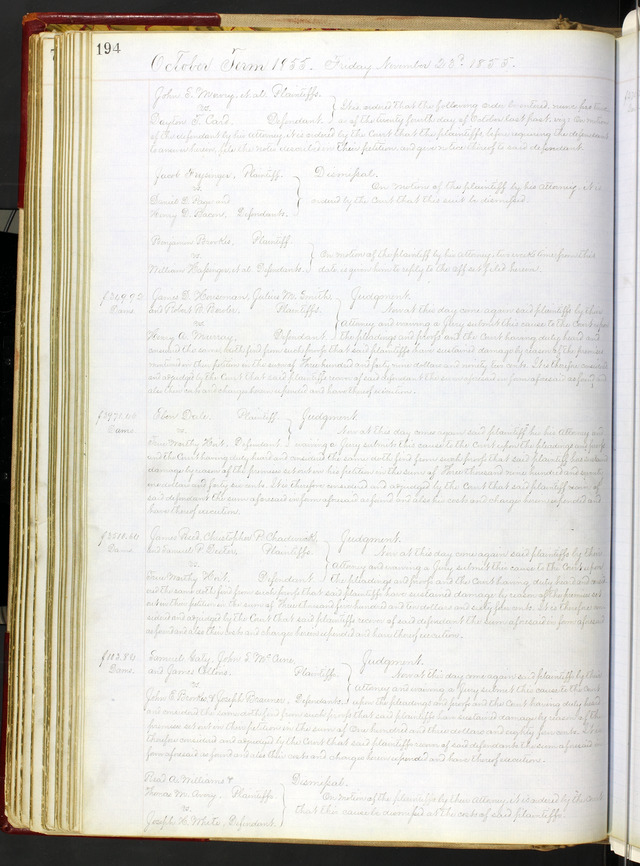 194
October Term 1855. Friday November 23d 1855.
John E. Merry, et al. Plaintiffs.
vs.
Defendant.
It is ordered that the following order be entered, nunc pro tunc
as of the twenty fourth day of October last past, viz: On motion
of the defendant by his attorney, it is ordered by the Court that the plaintiffs, before requiring the defendant
to answer herein, file the note described in their petition, and give notice thereof to said defendant.
Jacob Plaintiff.
vs.
Daniel D.
Henry D. Bacon, Defendants.
Dismissal.
On motion of the plaintiff by his attorney, it is
ordered by the Court that this suit be dismissed.
Benjamin Plaintiff.
vs.
William et al. Defendants.
On motion of the plaintiff by his attorney, two weeks time from this
date is given him to reply to the off set filed herein.
$349.92
Dams.
James B. Julius M. Smith
and Robert B. Plaintiffs.
vs.
Henry A. Murray, Defendant
Judgment.
Now at this day come again said plaintiffs by their
Attorney and waiving a Jury submit this cause to the Court upon
the pleadings and proofs and the Court having duly heard and
considered the same, doth find from such proofs that said plaintiffs have sustained damage by reason of the premises
mentioned in their petition in the sum of Three hundred and forty nine dollars and ninety two cents. It is therefore considered
and adjudged by the Court that said plaintiffs recover of said defendant the sum aforesaid in form aforesaid as found, and
also their costs and charges herein expended and have thereof execution.
Dams.
Plaintiff
vs.
Worthy Defendant
Judgment
Now at this day come again said plaintiff by his Attorney and
waiving a Jury submit this cause to the Court upon the pleadings and proofs
and the Court having duly heard and considered the same doth find from such proofs that said plaintiff has sustained
damage by reason of the premises set out in his petition in the sum of thousand nine hundred and seventy
dollars and forty cents. It is therefore considered and adjudged by the Court that said plaintiff recover of
said defendant the sum aforesaid in form aforesaid as found and also his costs and charges herein expended and
have thereof execution.
Dams.
James Reed, Christopher P. Chadwick
and Samuel P. Plaintiffs.
vs.
Worthy Defendant.
Judgment.
Now at this day come again said plaintiffs by their
Attorney and waiving a Jury submit this cause to the Court upon
the pleadings and proofs and the Court having duly heard and
the same doth find from such proofs that said plaintiffs have sustained damage by reason of the premises set
out in their petition in the sum of Three thousand hundred and ten dollars and sixty cents. It is therefore
and adjudged by the Court that said plaintiffs recover of said defendant the sum aforesaid in form aforesaid
as found and also their costs and charges herein expended and have thereof execution.
$103.80
Dams.
Samuel Gaty, John S. McCune,
and James Collins. Plaintiffs.
vs.
John R. & Joseph Defendants.
Judgment.
Now at this day come again said plaintiffs by their
Attorney and waiving a Jury submit this cause to the Court
upon the pleadings and proofs and the Court having duly heard
and considered the same doth find from such proofs that said plaintiffs have sustained damage by reason of the
premises set out in their petition in the sum of One hundred and three dollars and eighty cents. It is
therefore considered and adjudged by the Court that said plaintiffs recover of said defendants the sum aforesaid in
form aforesaid as found and also their costs and charges herein expended and have thereof execution.
A. Williams &
Thomas M. Plaintiffs.
vs.
Joseph H. White, Defendant.
Dismissal.
On motion of the plaintiffs by their Attorney, it is ordered by the Court
that this cause be dismissed at the costs of said plaintiffs.